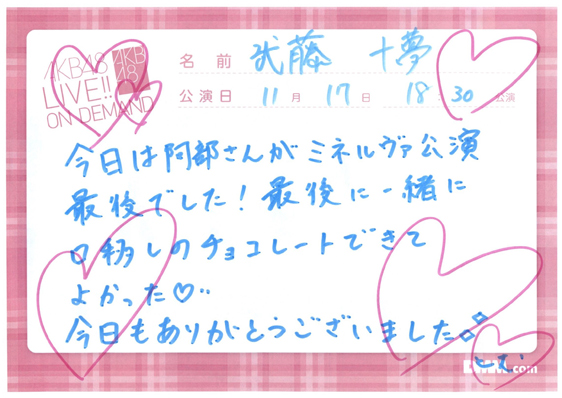 AKB48
LIVE!!
ON DEMAND
AKB
48
名前 武藤 十夢
公演日 11月17日 18:30公演
今日は阿部さんがミネルヴァ公演
最後でした!最後に一緒に
口移しのチョコレートできて
よかった♡
今日もありがとうございました。
とむ
.com